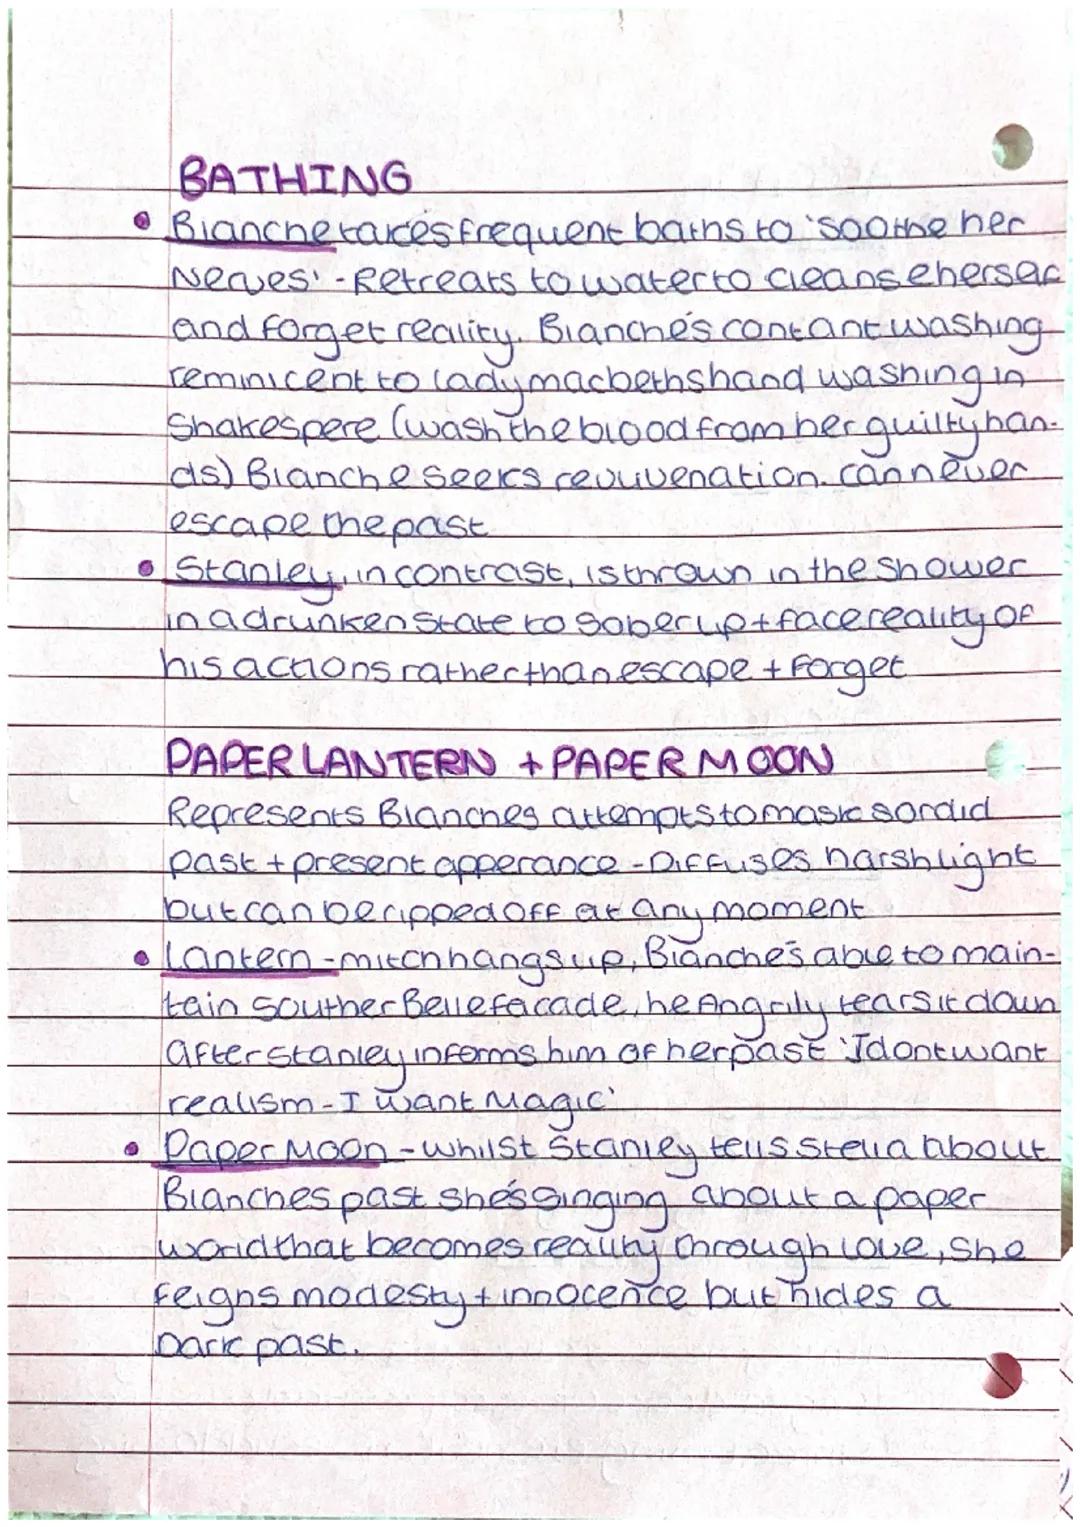 BATHING
Blanche takes frequent baths to 'soothe her
Nerves' - Retreats to water to cleanse herself
and forget reality. Blanche's contant washing
reminicent to lady macbeths hand washing in
Shakespere (wash the blood from her guilty han-
ds) Blanche seeks revuvenation. can never
escape the past
Stanley, in contrast, is thrown in the shower
in a drunken state to sober up + face reality of
his actions rather than escape + forget
PAPER LANTERN + PAPER MOON
Represents Blanches attempts to mask sordid
past + present apperance - Diffuses harsh light
but can be ripped off at any moment
Lantern - mitch hangs up, Blanche's able to main-
tain souther Belle facade, he Angrily tears it down
after stanley informs him of her past 'I dont want
realism - I want Magic'
Paper Moon - whilst Stanley tells stella about
Blanches past she's singing about a paper
world that becomes reality through love, she
feigns modesty + innocence but hides a
Dark past.